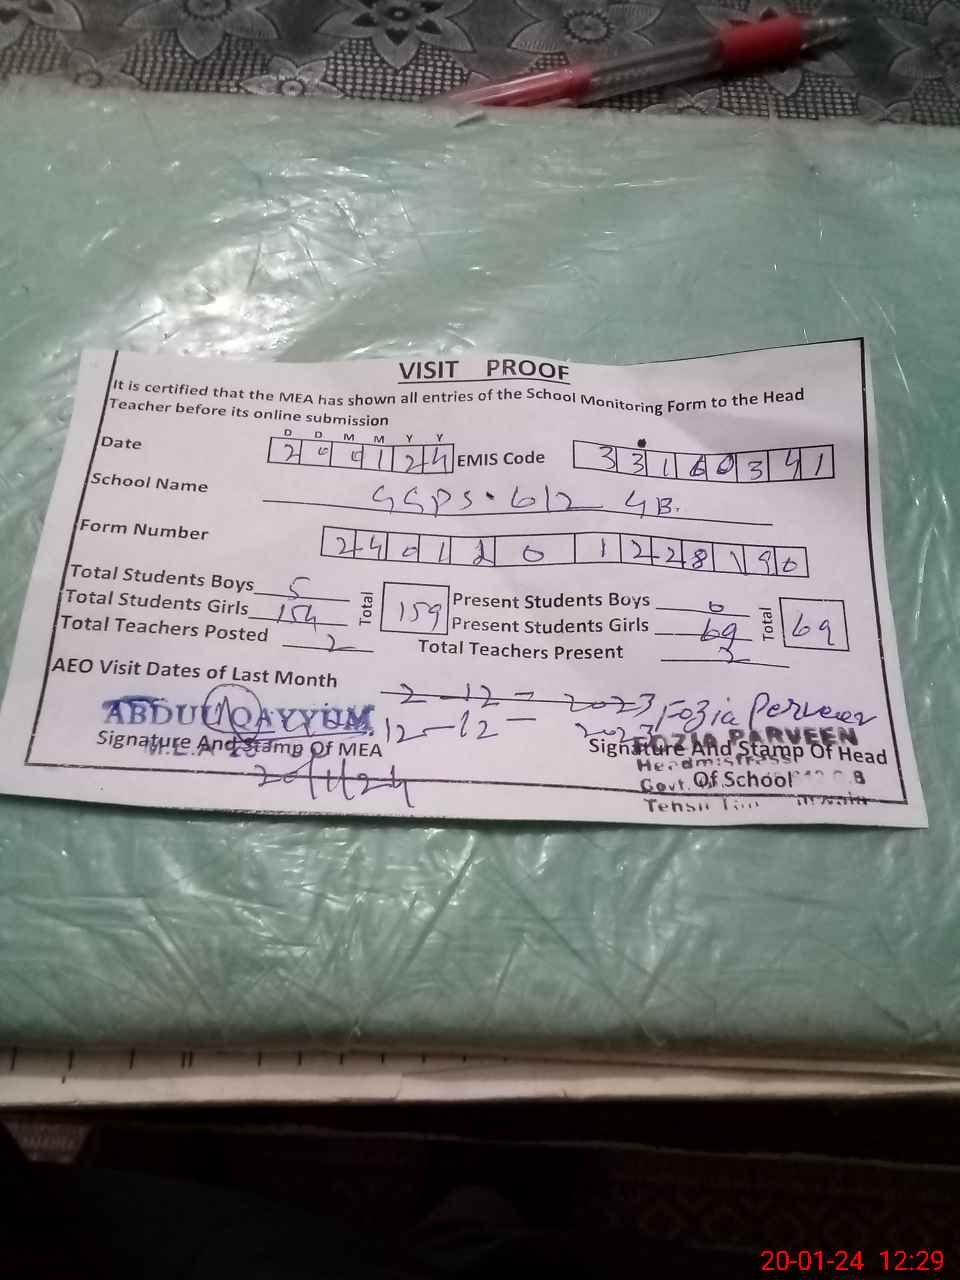 VISIT PROOF
It is certified that the MEA has shown all entries of the School Monitoring Form to the Head
Teacher before its online submission
D D M M Y Y
Date 2 0 0 1 2 4 EMIS Code 3 3 1 6 0 3 4 1
School Name GGPS. 612 GB.
Form Number 2 4 0 1 2 0 1 2 2 8 1 9 0
Total Students Boys 5 Present Students Boys 0
Total Students Girls 154 Total 159 Present Students Girls 69 Total 69
Total Teachers Posted 2 Total Teachers Present 2
AEO Visit Dates of Last Month 2-12-2023
12-12-2023
Fozia Perveen
ABDUL QAYYUM
FOZIA PARVEEN
Signature And Stamp Of MEA
Signature And Stamp Of Head
Headmistress
Of School
Govt.
20/1/24
20-01-24 12:29